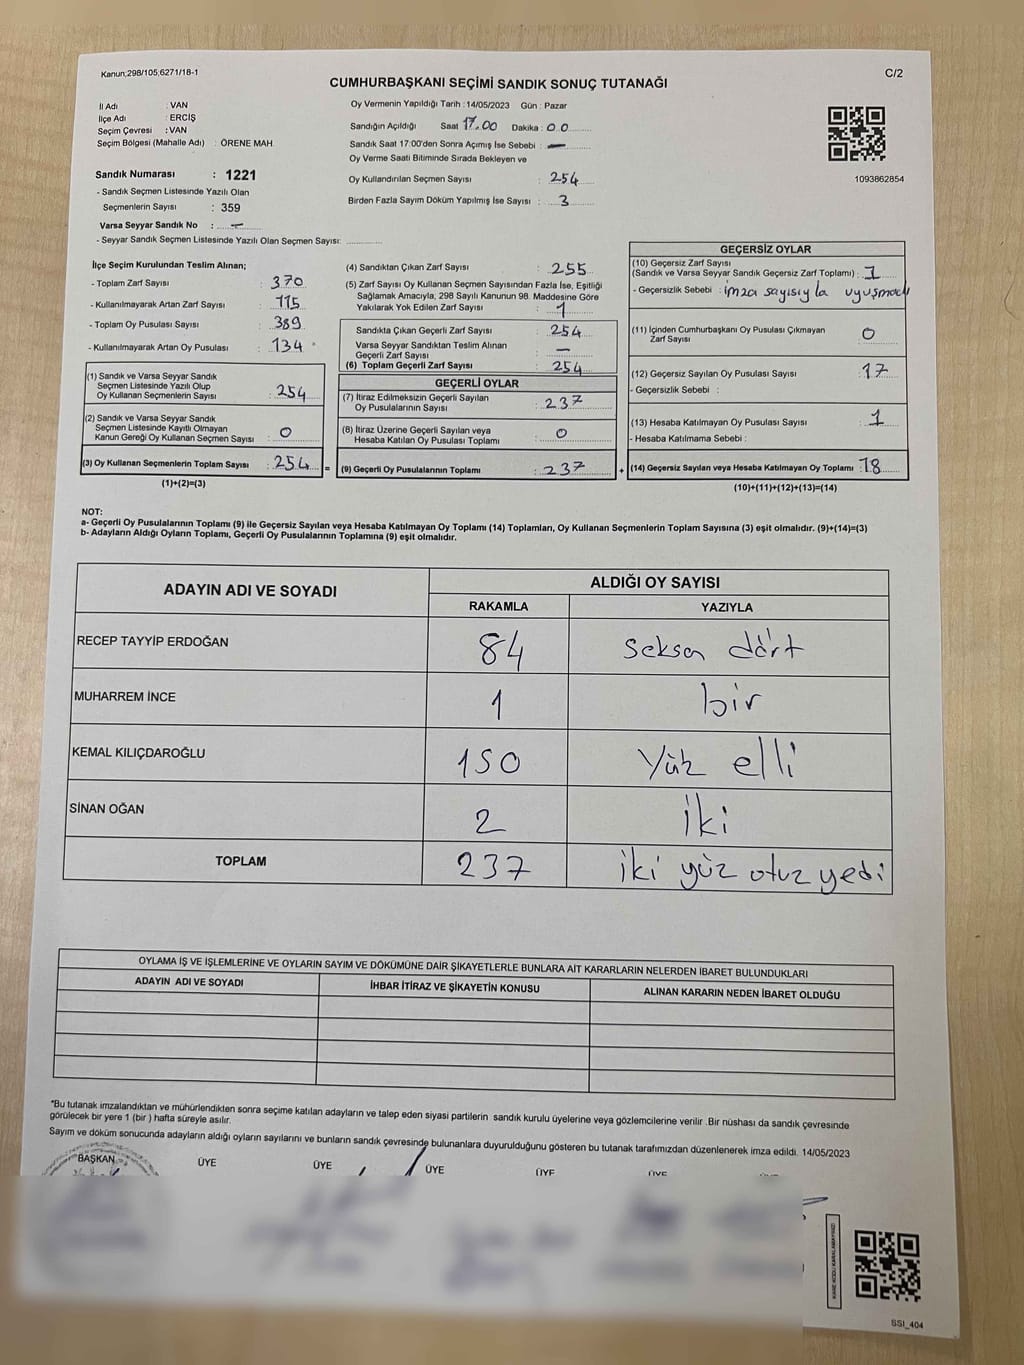 Kanun;298/105;6271/18-1
C/2
CUMHURBAŞKANI SEÇİMİ SANDIK SONUÇ TUTANAĞI
İl Adı : VAN
İlçe Adı : ERCİŞ
Seçim Çevresi : VAN
Seçim Bölgesi (Mahalle Adı) : ÖRENE MAH.
Sandık Numarası : 1221
- Sandık Seçmen Listesinde Yazılı Olan
Seçmenlerin Sayısı : 359
Varsa Seyyar Sandık No : —
- Seyyar Sandık Seçmen Listesinde Yazılı Olan Seçmen Sayısı:
Oy Vermenin Yapıldığı Tarih : 14/05/2023 Gün : Pazar
Sandığın Açıldığı Saat 17.00 Dakika : 00
Sandık Saat 17:00'den Sonra Açımış İse Sebebi : —
Oy Verme Saati Bitiminde Sırada Bekleyen ve
Oy Kullandırılan Seçmen Sayısı : 254
Birden Fazla Sayım Döküm Yapılmış İse Sayısı : 3
1093862854
İlçe Seçim Kurulundan Teslim Alınan;
- Toplam Zarf Sayısı : 370
- Kullanılmayarak Artan Zarf Sayısı : 115
- Toplam Oy Pusulası Sayısı : 389
- Kullanılmayarak Artan Oy Pusulası : 134
(1) Sandık ve Varsa Seyyar Sandık
Seçmen Listesinde Yazılı Olup
Oy Kullanan Seçmenlerin Sayısı : 254
(2) Sandık ve Varsa Seyyar Sandık
Seçmen Listesinde Kayıtlı Olmayan
Kanun Gereği Oy Kullanan Seçmen Sayısı : 0
(3) Oy Kullanan Seçmenlerin Toplam Sayısı : 254 =
(1)+(2)=(3)
(4) Sandıktan Çıkan Zarf Sayısı : 255
(5) Zarf Sayısı Oy Kullanan Seçmen Sayısından Fazla İse, Eşitliği
Sağlamak Amacıyla, 298 Sayılı Kanunun 98. Maddesine Göre
Yakılarak Yok Edilen Zarf Sayısı : 1
Sandıkta Çıkan Geçerli Zarf Sayısı : 254
Varsa Seyyar Sandıktan Teslim Alınan
Geçerli Zarf Sayısı : —
(6) Toplam Geçerli Zarf Sayısı : 254
GEÇERLİ OYLAR
(7) İtiraz Edilmeksizin Geçerli Sayılan
Oy Pusulalarının Sayısı : 237
(8) İtiraz Üzerine Geçerli Sayılan veya
Hesaba Katılan Oy Pusulası Toplamı : 0
(9) Geçerli Oy Pusulalarının Toplamı : 237 +
GEÇERSİZ OYLAR
(10) Geçersiz Zarf Sayısı
(Sandık ve Varsa Seyyar Sandık Geçersiz Zarf Toplamı) : 1
- Geçersizlik Sebebi : imza sayısıyla uyuşmadı
(11) İçinden Cumhurbaşkanı Oy Pusulası Çıkmayan
Zarf Sayısı : 0
(12) Geçersiz Sayılan Oy Pusulası Sayısı : 17
- Geçersizlik Sebebi :
(13) Hesaba Katılmayan Oy Pusulası Sayısı : 1
- Hesaba Katılmama Sebebi :
(14) Geçersiz Sayılan veya Hesaba Katılmayan Oy Toplamı : 18
(10)+(11)+(12)+(13)=(14)
NOT:
a- Geçerli Oy Pusulalarının Toplamı (9) ile Geçersiz Sayılan veya Hesaba Katılmayan Oy Toplamı (14) Toplamları, Oy Kullanan Seçmenlerin Toplam Sayısına (3) eşit olmalıdır. (9)+(14)=(3)
b- Adayların Aldığı Oyların Toplamı, Geçerli Oy Pusulalarının Toplamına (9) eşit olmalıdır.
ADAYIN ADI VE SOYADI
ALDIĞI OY SAYISI
RAKAMLA YAZIYLA
RECEP TAYYİP ERDOĞAN 84 seksen dört
MUHARREM İNCE 1 bir
KEMAL KILIÇDAROĞLU 150 Yüz elli
SİNAN OĞAN 2 iki
TOPLAM 237 iki yüz otuz yedi
OYLAMA İŞ VE İŞLEMLERİNE VE OYLARIN SAYIM VE DÖKÜMÜNE DAİR ŞİKAYETLERLE BUNLARA AİT KARARLARIN NELERDEN İBARET BULUNDUKLARI
ADAYIN ADI VE SOYADI İHBAR İTİRAZ VE ŞİKAYETİN KONUSU ALINAN KARARIN NEDEN İBARET OLDUĞU
*Bu tutanak imzalandıktan ve mühürlendikten sonra seçime katılan adayların ve talep eden siyasi partilerin sandık kurulu üyelerine veya gözlemcilerine verilir .Bir nüshası da sandık çevresinde
görülecek bir yere 1 (bir ) hafta süreyle asılır.
Sayım ve döküm sonucunda adayların aldığı oyların sayılarını ve bunların sandık çevresinde bulunanlara duyurulduğunu gösteren bu tutanak tarafımızdan düzenlenerek imza edildi. 14/05/2023
BAŞKAN ÜYE ÜYE ÜYE ÜYE ÜYE
KARE KODU KARALAMAYINIZ!
SSI_404